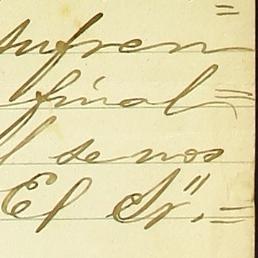 sufren
final
l se nos
El Sr.